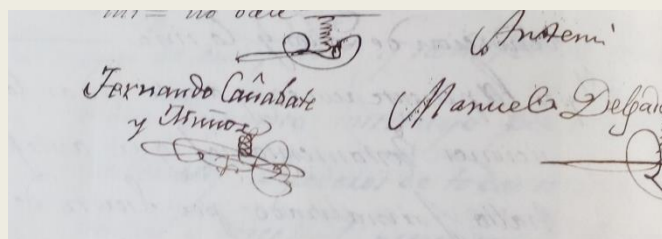 no vale
Antemi
Fernando Cañabate
y Muñoz
Manuel Delgado